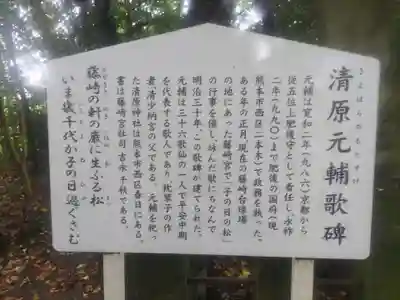 清原元輔歌碑
きよはらのもとすけ
元輔は寛和二年(九八六)京都から
従五位上肥後守として着任し、永祚
二年(九九〇)まで肥後の国府(現
熊本市西区二本木)で政務を執った。
ある年の正月現在の藤崎台球場
の地にあった藤崎宮で「子の日の松」
の行事を催し、詠んだ歌にちなんで
明治三十年、この歌碑が建てられた。
元輔は三十六歌仙の一人で平安中期
を代表する歌人であり、枕草子の作
者清少納言の父である。元輔を祀っ
た清原神社は熊本市西区春日にある。
書は藤崎宮社司 吉永千秋である。
藤崎の軒の巌に生ふる松
いま幾千代か子の日過ぐさむ